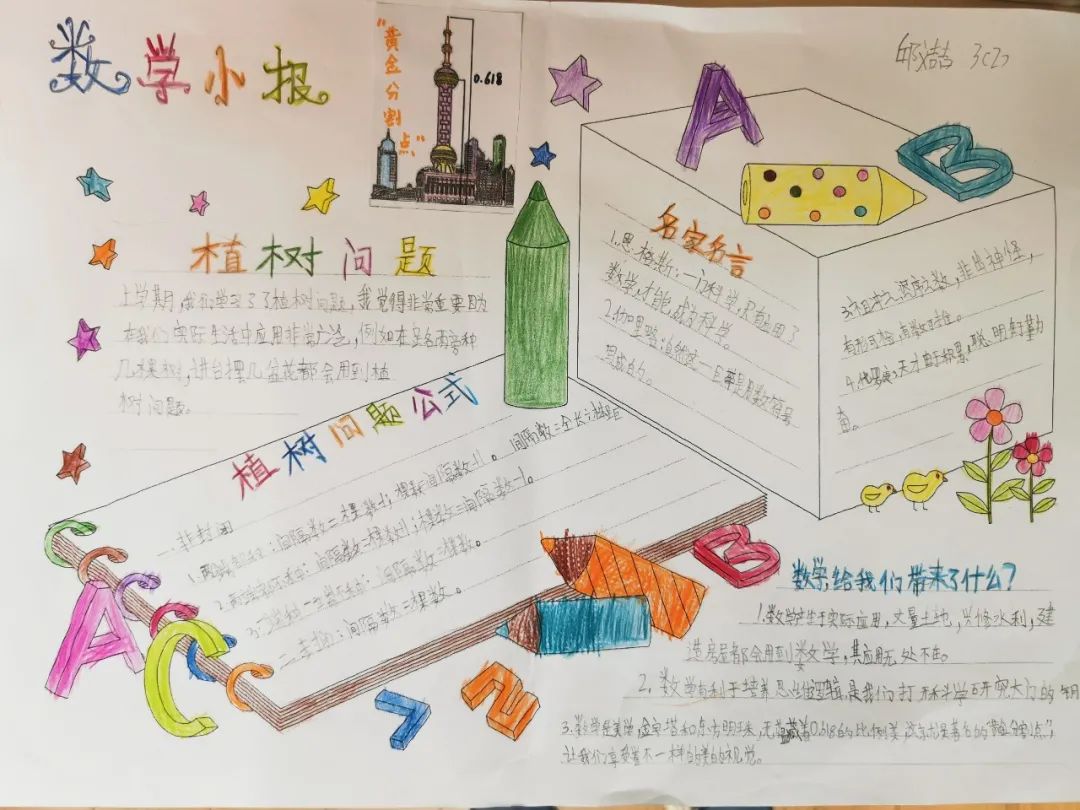 数学小报
"黄金分割点"
0.618
3(2)
植树问题
上学期,我们学习了植树问题,我觉得非常重要因为
在我们实际生活中应用非常广泛,例如在路两旁种
几棵树,讲台摆几盆花都会用到植
树问题。
植树问题公式
一.非封闭
1.两端都种:间隔数=棵数-1;棵数=间隔数+1。间隔数=全长÷株距
2.两端都不种:间隔数=棵数+1;棵数=间隔数-1。
3.一端种一端不种:间隔数=棵数。
二.封闭:间隔数=棵数。
名家名言
1.马克思:一门科学,只有应用了
数学,才能成为科学。
2.伽里略:自然这一巨著是用数学符号
写成的。
有形可检,有数可推。
4.华罗庚:天才由于积累,聪明好勤
奋。
数学给我们带来了什么?
1.数学产生于实际应用,丈量土地,兴修水利,建
造房屋都会用到数学,其应用无处不在。
2.数学有利于培养思维逻辑是我们打开科学研究大门的钥
3.数学是美学,金字塔和东方明珠,无不藏着0.618的比例美,这就是著名的"黄金分割点",
让我们享受着不一样的美的视觉。
A
B
A
B
C
7
2